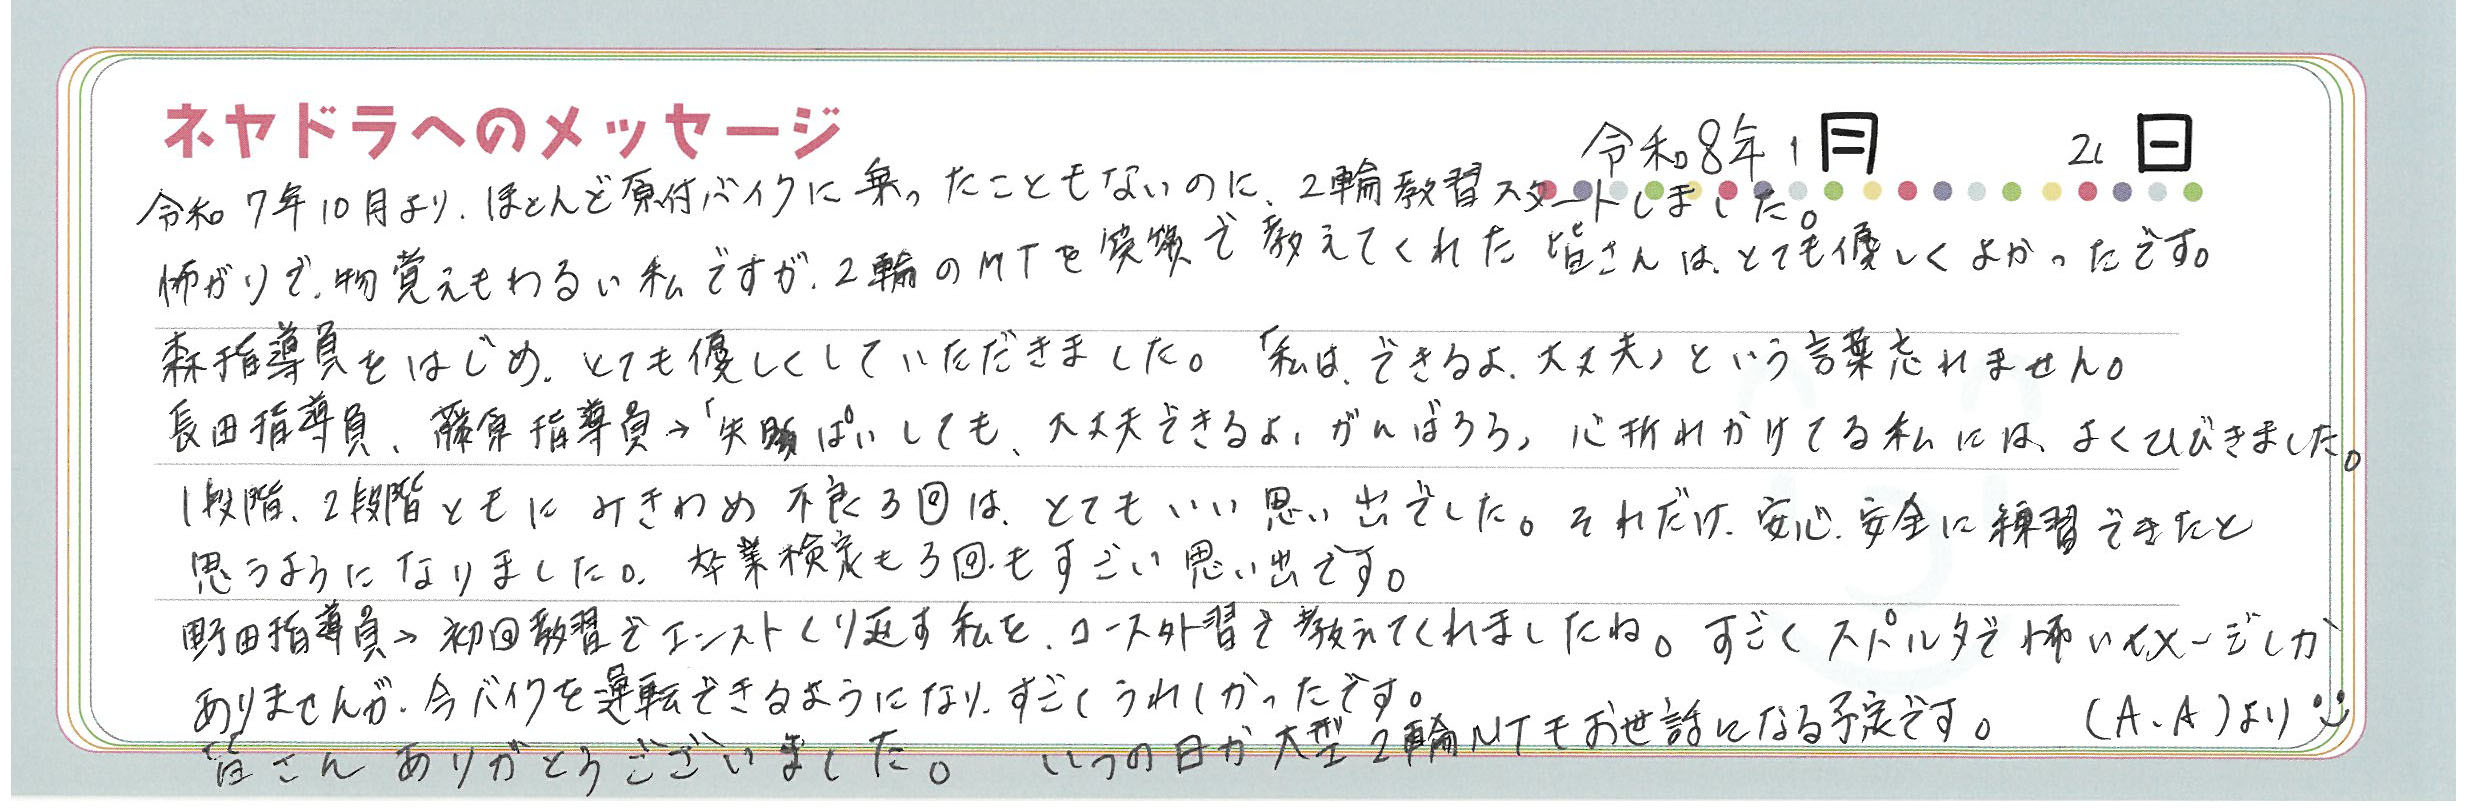 ネヤドラへのメッセージ
令和8年1月21日
令和7年10月より、ほとんど原付バイクに乗ったこともないのに、2輪教習スタートしました。
怖がりで、物覚えもわるい私ですが、2輪のMTを笑顔で教えてくれた皆さんは、とても優しくよかったです。
森指導員をはじめ、とても優しくしていただきました。「私は、できるよ、大丈夫」という言葉忘れません。
長田指導員、藤原指導員→「失ぱいしても、大丈夫できるよ、がんばろう」心折れかけてる私には、よくひびきました。
1段階、2段階ともにみきわめ不良3回は、とてもいい思い出でした。それだけ、安心、安全に練習できたと
思うようになりました。卒業検定も3回もすごい思い出です。
野田指導員→初回教習でエンストくり返す私を、コース外習で教えてくれましたね。すごくスパルタで怖いイメージしか
ありませんが、今バイクを運転できるようになり、すごくうれしかったです。
皆さんありがとうございました。 いつの日か大型2輪MTもお世話になる予定です。 (A.A)より